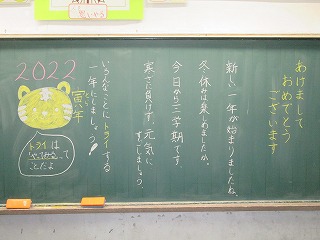 あけまして
おめでとう
ございます
新しい一年が始まりましたね。
冬休みは楽しめましたか。
今日から三学期です
寒さに負けず、元気に
すごしましょう。
いろんなことにトライする
一年にしましょう!
2022
寅年
とら
トライは
"やってみる"って
ことだよ